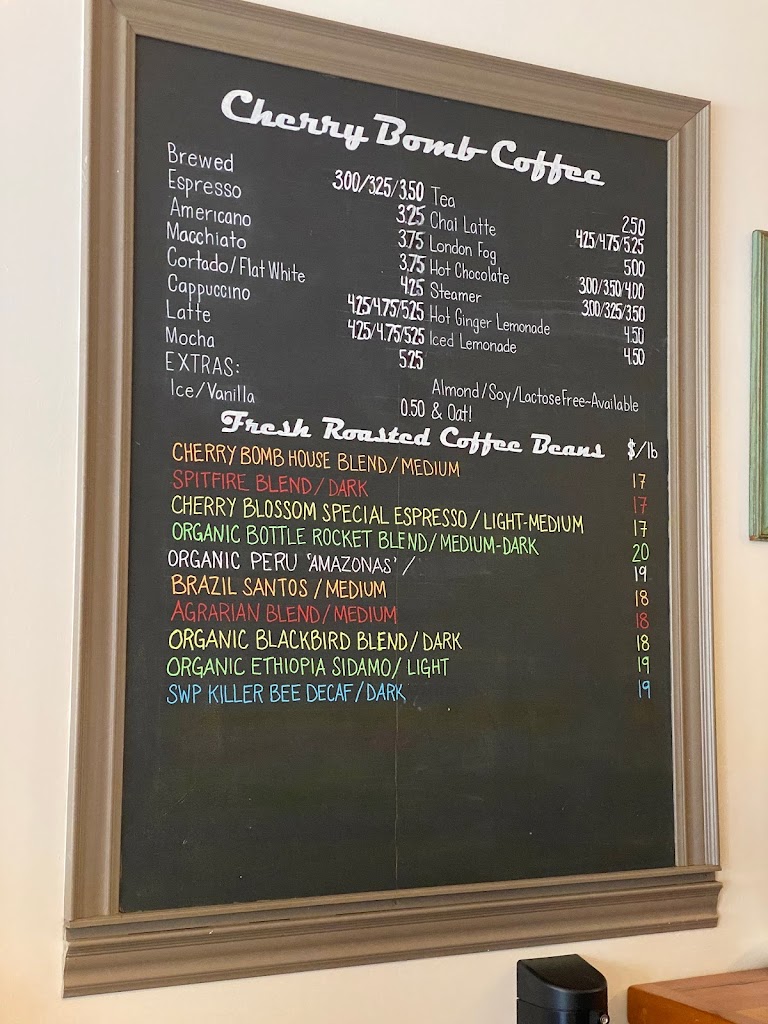 Cherry Bomb Coffee
Brewed 3.00/3.25/3.50
Espresso 3.25
Americano 3.75
Macchiato 3.75
Cortado/Flat White 4.25
Cappuccino 4.25/4.75/5.25
Latte 4.25/4.75/5.25
Mocha 5.25
EXTRAS:
Ice/Vanilla 0.50
Tea 2.50
Chai Latte 4.25/4.75/5.25
London Fog 5.00
Hot Chocolate 3.00/3.50/4.00
Steamer 3.00/3.25/3.50
Hot Ginger Lemonade 4.50
Iced Lemonade 4.50
Almond/Soy/Lactose Free~Available
& Oat!
Fresh Roasted Coffee Beans $/lb
CHERRY BOMB HOUSE BLEND/MEDIUM 17
SPITFIRE BLEND/DARK 17
CHERRY BLOSSOM SPECIAL ESPRESSO/LIGHT-MEDIUM 17
ORGANIC BOTTLE ROCKET BLEND/MEDIUM-DARK 20
ORGANIC PERU 'AMAZONAS' / 19
BRAZIL SANTOS/MEDIUM 18
AGRARIAN BLEND/MEDIUM 18
ORGANIC BLACKBIRD BLEND/DARK 18
ORGANIC ETHIOPIA SIDAMO/LIGHT 19
SWP KILLER BEE DECAF/DARK 19